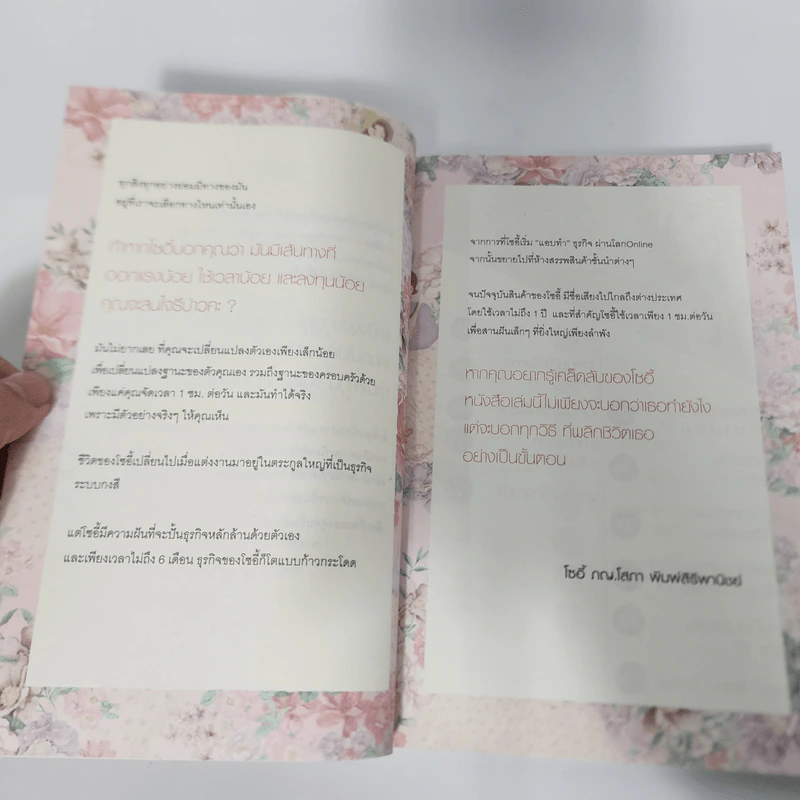 ทุกสิ่งทุกอย่างย่อมมีทางของมัน
อยู่ที่เราจะเลือกทางไหนเท่านั้นเอง
ถ้าหากโซอี้บอกคุณว่า มันมีเส้นทางที่
ออกแรงน้อย ใช้เวลาน้อย และลงทุนน้อย
คุณจะสนใจรึป่าวคะ ?
มันไม่ยากเลย ที่คุณจะเปลี่ยนแปลงตัวเองเพียงเล็กน้อย
เพื่อเปลี่ยนแปลงฐานะของตัวคุณเอง รวมถึงฐานะของครอบครัวด้วย
เพียงแค่คุณจัดเวลา 1 ชม. ต่อวัน และมันทำได้จริง
เพราะมีตัวอย่างจริงๆ ให้คุณเห็น
ชีวิตของโซอี้เปลี่ยนไปเมื่อแต่งงานมาอยู่ในตระกูลใหญ่ที่เป็นธุรกิจ
ระบบกงสี
แต่โซอี้มีความฝันที่จะปั้นธุรกิจหลักล้านด้วยตัวเอง
และเพียงเวลาไม่ถึง 6 เดือน ธุรกิจของโซอี้ก็โตแบบก้าวกระโดด
จากการที่โซอี้เริ่ม "แอบทำ" ธุรกิจ ผ่านโลกOnline
จากนั้นขยายไปที่ห้างสรรพสินค้าชั้นนำต่างๆ
จนปัจจุบันสินค้าของโซอี้ มีชื่อเสียงไปไกลถึงต่างประเทศ
โดยใช้เวลาไม่ถึง 1 ปี และที่สำคัญโซอี้ใช้เวลาเพียง 1 ชม.ต่อวัน
เพื่อสานฝันเล็กๆ ที่ยิ่งใหญ่เพียงลำพัง
หากคุณอยากรู้เคล็ดลับของโซอี้
หนังสือเล่มนี้ไม่เพียงจะบอกว่าเธอทำยังไง
แต่จะบอกทุกวิธี ที่พลิกชีวิตเธอ
อย่างเป็นขั้นตอน
โซอี้ ภญ.โสภา พิมพ์สิริพานิชย์